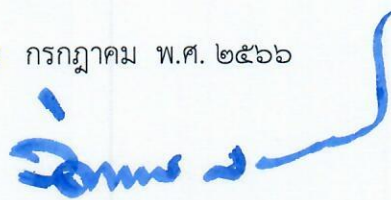 กรกฎาคม พ.ศ. ๒๕๖๖